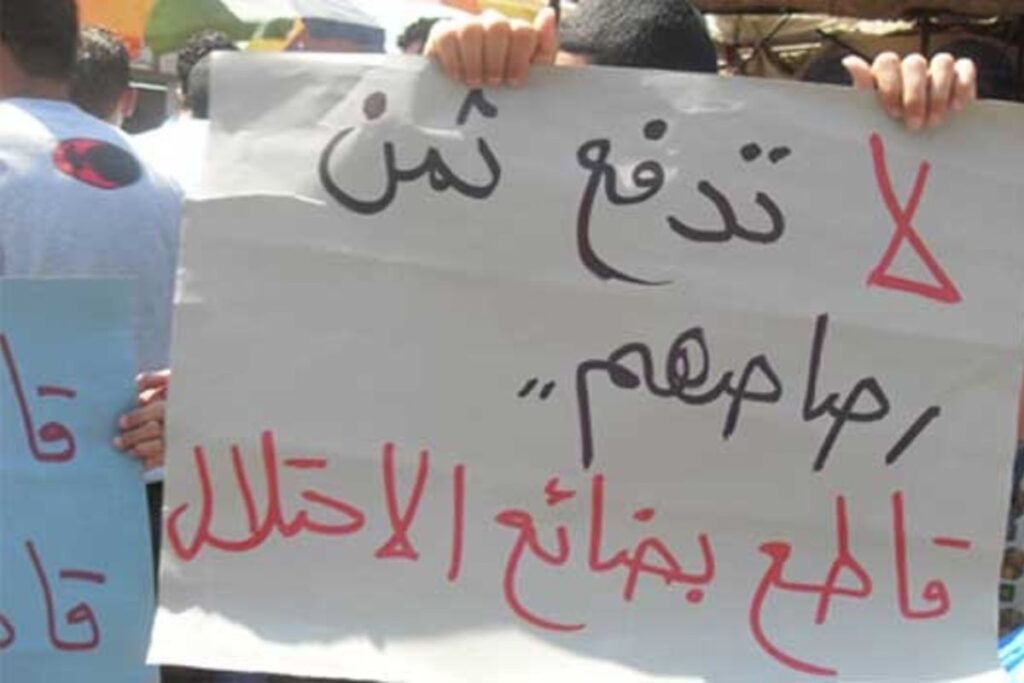 لا تدفع ثمن
رصاصهم،،
قاطع بضائع الاحتلال
قا
قا